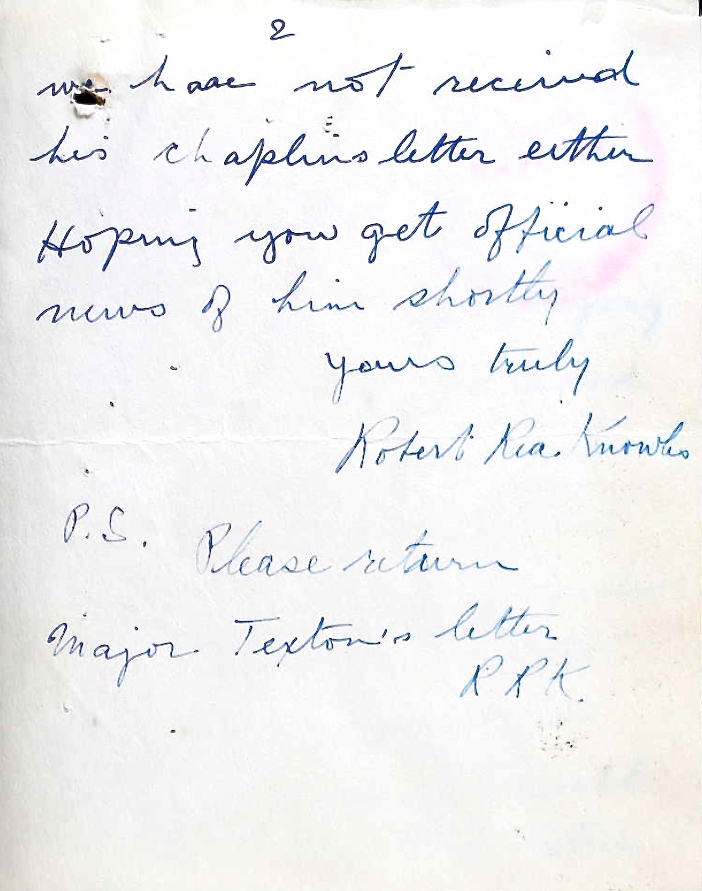 2
we have not received
his chaplins letter either
Hoping you get official
news of him shortly
yours truly
Robert Rea. Knowles
P.S. Please return
Major Texton's letter
R R K.